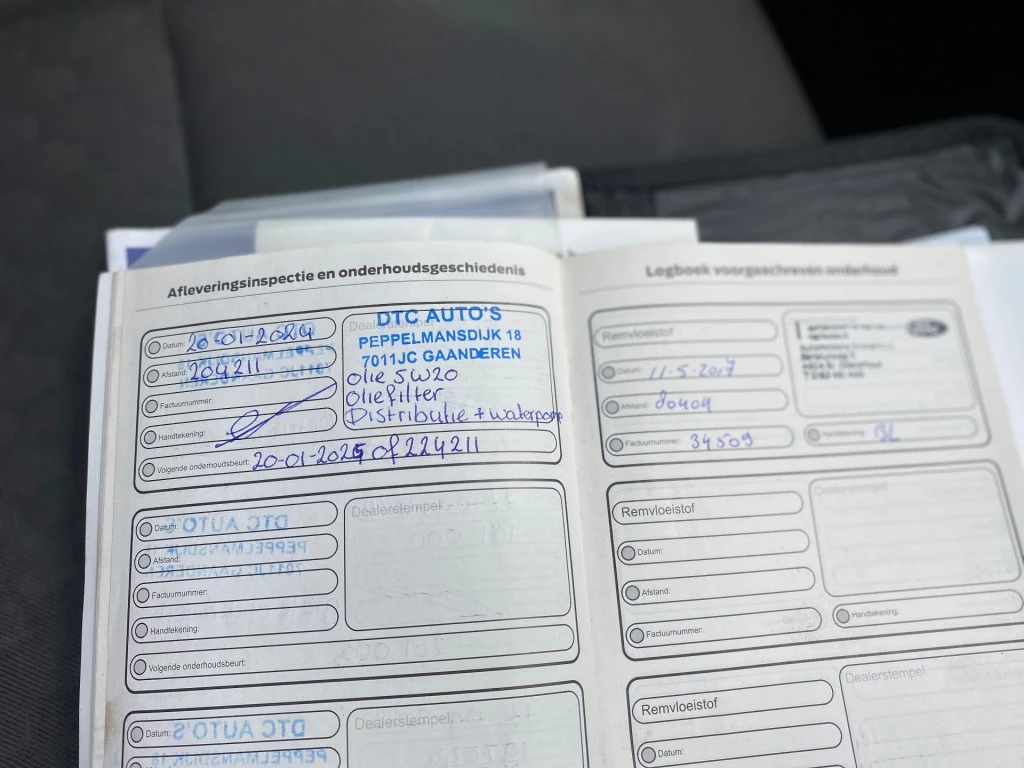 Afleveringsinspectie en onderhoudsgeschiedenis
Datum: 20-01-2024
Afstand: 204211
Factuurnummer:
Handtekening:
Dealerstempel
DTC AUTO'S
PEPPELMANSDIJK 18
7011JC GAANDEREN
Olie 5W20
Oliefilter
Distributie + waterpomp
Volgende onderhoudsbeurt: 20-01-2025 of 224211
Datum:
Afstand:
Factuurnummer:
Handtekening:
Volgende onderhoudsbeurt:
Dealerstempel
DTC AUTO'S
PEPPELMANSDIJK
7011JC GAANDEREN
Datum:
Dealerstempel
DTC AUTO'S
PEPPELMANSDIJK 18
Logboek voorgeschreven onderhoud
Remvloeistof
Datum: 11-5-2017
Afstand: 80404
Factuurnummer: 34509
Handtekening:
Ford
Remvloeistof
Datum:
Afstand:
Factuurnummer:
Dealerstempel
Handtekening:
Remvloeistof
Datum:
Dealerstempel